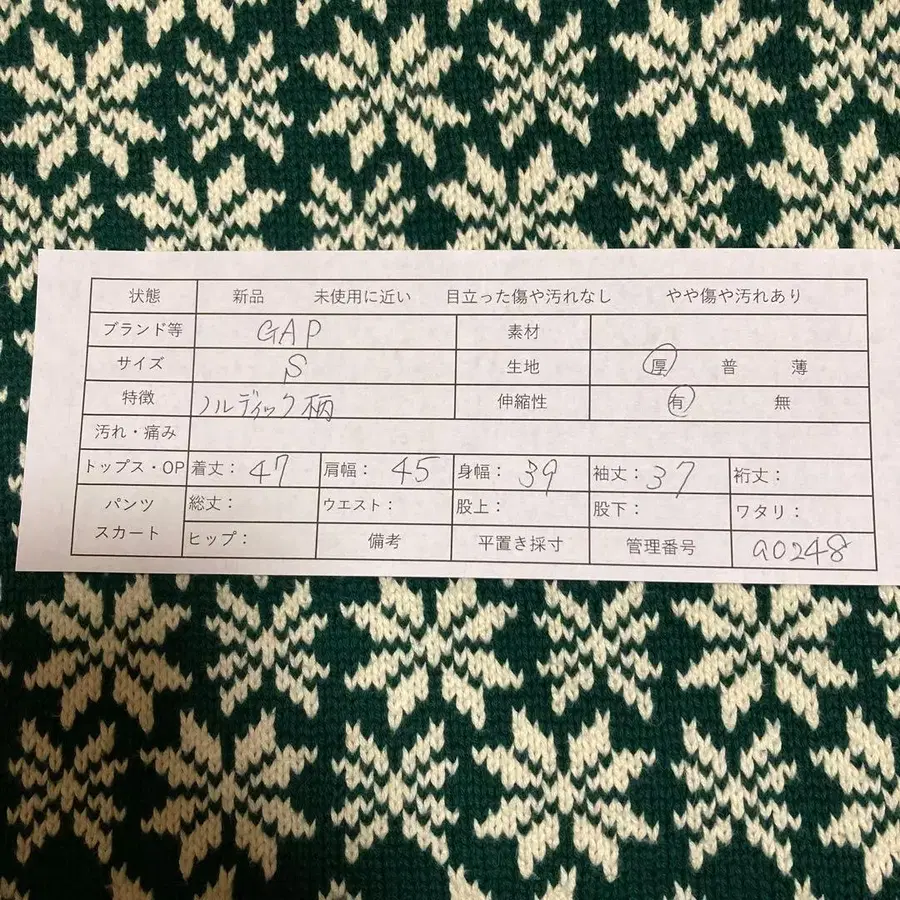 状態 新品 未使用に近い 目立った傷や汚れなし やや傷や汚れあり
ブランド等 GAP 素材
サイズ S 生地 厚 普 薄
特徴 ノルディック柄 伸縮性 有 無
汚れ・痛み
トップス・OP 着丈: 47 肩幅: 45 身幅: 39 袖丈: 37 裄丈:
パンツ 総丈: ウエスト: 股上: 股下: ワタリ:
スカート ヒップ: 備考 平置き採寸 管理番号 a0248